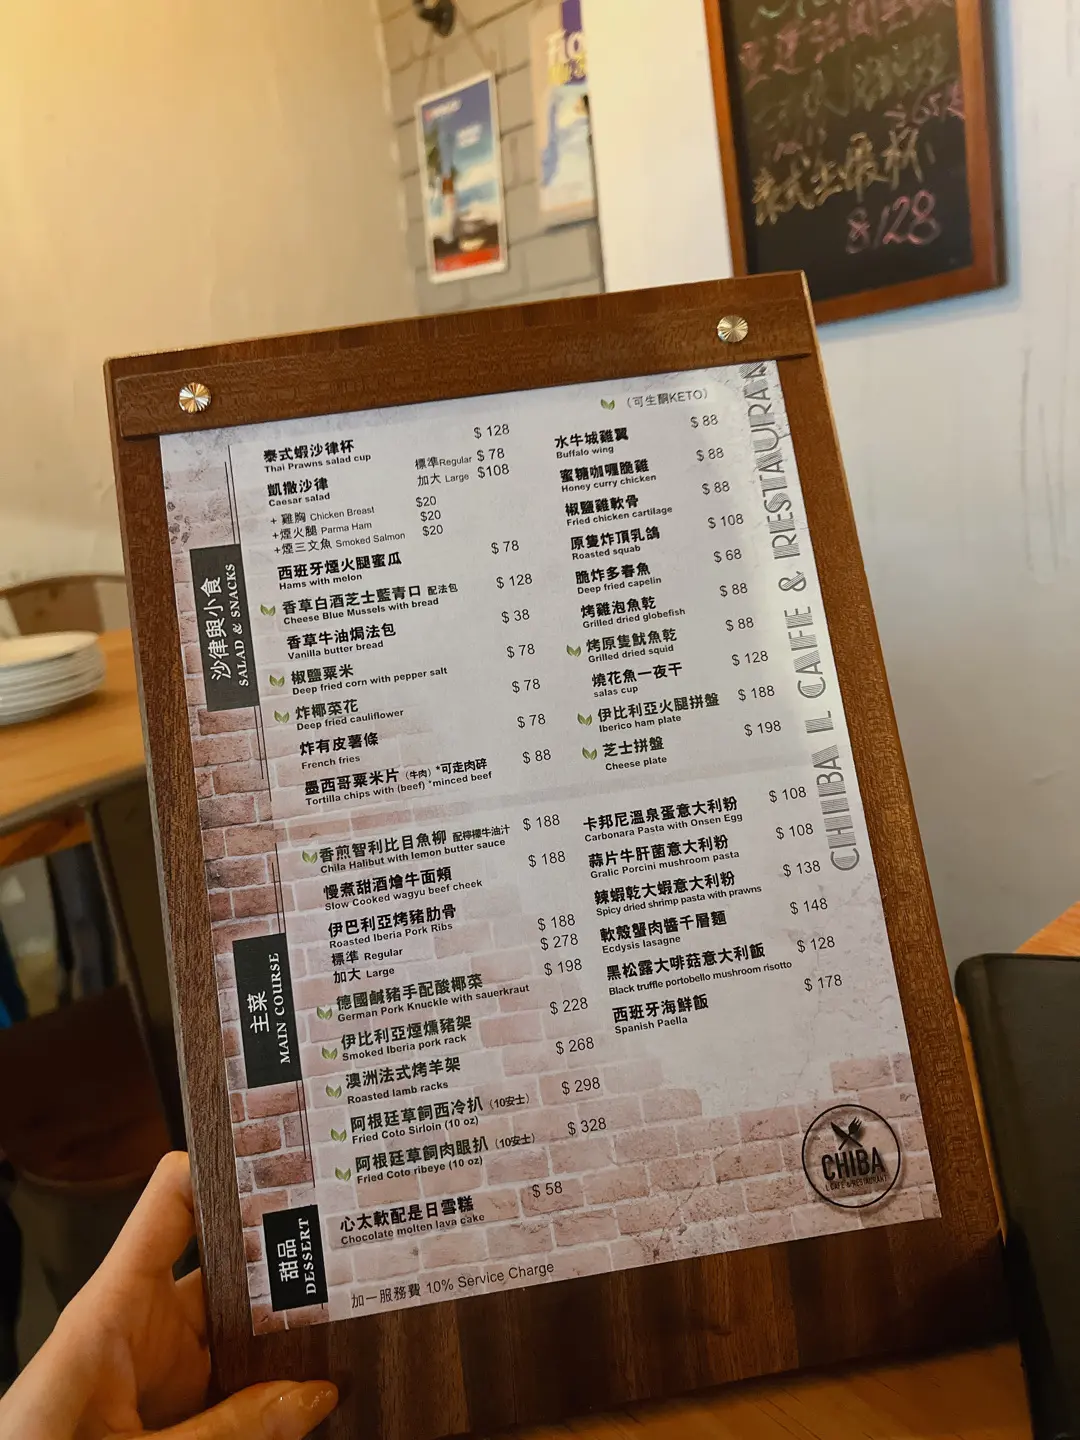 $128
(可生酮KETO)
CHIBA L CAFE & RESTAURA
沙律與小食
SALAD & SNACKS
泰式蝦沙律杯 $ 128
Thai Prawns salad cup
凱撒沙律 標準Regular $ 78
Caesar salad 加大 Large $108
+ 雞胸 Chicken Breast $20
+煙火腿 Parma Ham $20
+煙三文魚 Smoked Salmon $20
西班牙煙火腿蜜瓜 $ 78
Hams with melon
香草白酒芝士藍青口 配法包 $ 128
Cheese Blue Mussels with bread
香草牛油焗法包 $ 38
Vanilla butter bread
椒鹽粟米 $ 78
Deep fried corn with pepper salt
炸椰菜花 $ 78
Deep fried cauliflower
炸有皮薯條 $ 78
French fries
墨西哥粟米片 (牛肉) *可走肉碎 $ 88
Tortilla chips with (beef) *minced beef
水牛城雞翼 $ 88
Buffalo wing
蜜糖咖喱脆雞 $ 88
Honey curry chicken
椒鹽雞軟骨 $ 88
Fried chicken cartilage
原隻炸頂乳鴿 $ 108
Roasted squab
脆炸多春魚 $ 68
Deep fried capelin
烤雞泡魚乾 $ 88
Grilled dried globefish
烤原隻魷魚乾 $ 88
Grilled dried squid
燒花魚一夜干 $ 128
salas cup
伊比利亞火腿拼盤 $ 188
Iberico ham plate
芝士拼盤 $ 198
Cheese plate
主菜
MAIN COURSE
香煎智利比目魚柳 配檸檬牛油汁 $ 188
Chila Halibut with lemon butter sauce
慢煮甜酒燴牛面頰 $ 188
Slow Cooked wagyu beef cheek
伊巴利亞烤豬肋骨
Roasted Iberia Pork Ribs
標準 Regular $ 188
加大 Large $ 278
德國鹹豬手配酸椰菜 $ 198
German Pork Knuckle with sauerkraut
伊比利亞煙燻豬架 $ 228
Smoked Iberia pork rack
澳洲法式烤羊架 $ 268
Roasted lamb racks
阿根廷草飼西冷扒 (10安士) $ 298
Fried Coto Sirloin (10 oz)
阿根廷草飼肉眼扒 (10安士) $ 328
Fried Coto ribeye (10 oz)
卡邦尼溫泉蛋意大利粉 $ 108
Carbonara Pasta with Onsen Egg
蒜片牛肝菌意大利粉 $ 108
Gralic Porcini mushroom pasta
辣蝦乾大蝦意大利粉 $ 138
Spicy dried shrimp pasta with prawns
軟殼蟹肉醬千層麵 $ 148
Ecdysis lasagne
黑松露大啡菇意大利飯 $ 128
Black truffle portobello mushroom risotto
西班牙海鮮飯 $ 178
Spanish Paella
甜品
DESSERT
心太軟配是日雪糕 $ 58
Chocolate molten lava cake
加一服務費 10% Service Charge
CHIBA
L CAFE & RESTAURANT